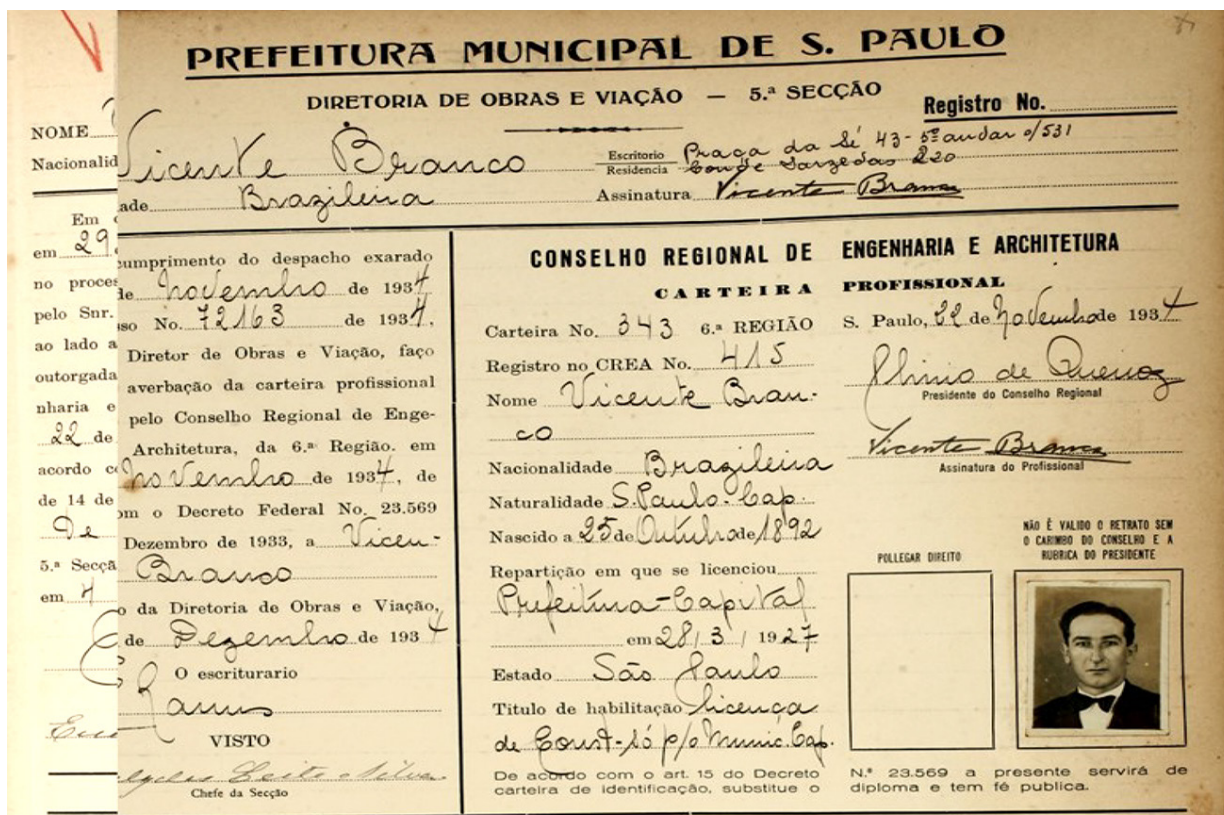 PREFEITURA MUNICIPAL DE S. PAULO
DIRETORIA DE OBRAS E VIAÇÃO — 5.ª SECÇÃO
Registro No.
NOME Vicente Branco
Nacionalidade Brazileira
Escritorio Praça da Sé 43 - 5º andar s/531
Residencia Conde Sarzedas 220
Assinatura Vicente Branco
Em cumprimento do despacho exarado
em 29 de Novembro de 1934
no processo No. 72163 de 1934,
pelo Snr. Diretor de Obras e Viação, faço
ao lado a averbação da carteira profissional
outorgada pelo Conselho Regional de Enge-
nharia e Architetura, da 6.ª Região. em
22 de Novembro de 1934, de
acordo com o Decreto Federal No. 23.569
de 14 de Dezembro de 1933, a Vicen-
Branco
5.ª Secção da Diretoria de Obras e Viação,
em 4 de Dezembro de 1934
O escriturario
Ramos
VISTO
Leite Silva
Chefe da Secção
CONSELHO REGIONAL DE ENGENHARIA E ARCHITETURA
CARTEIRA PROFISSIONAL
Carteira No. 343 6.ª REGIÃO
Registro no CREA No. 415
Nome Vicente Bran-
co
Nacionalidade Brazileira
Naturalidade S. Paulo - Cap.
Nascido a 25 de Outubro de 1892
Repartição em que se licenciou
Prefeitura - Capital
em 28 / 3 / 1927
Estado São Paulo
Titulo de habilitação licença
de Const. - só p/o Munic. Cap.
De acordo com o art. 15 do Decreto
carteira de identificação, substitue o
S. Paulo, 22 de Novembro de 1934
Plinio de Queiroz
Presidente do Conselho Regional
Vicente Branco
Assinatura do Profissional
NÃO É VALIDO O RETRATO SEM
O CARIMBO DO CONSELHO E A
RUBRICA DO PRESIDENTE
POLLEGAR DIREITO
N.º 23.569 a presente servirá de
diploma e tem fé publica.